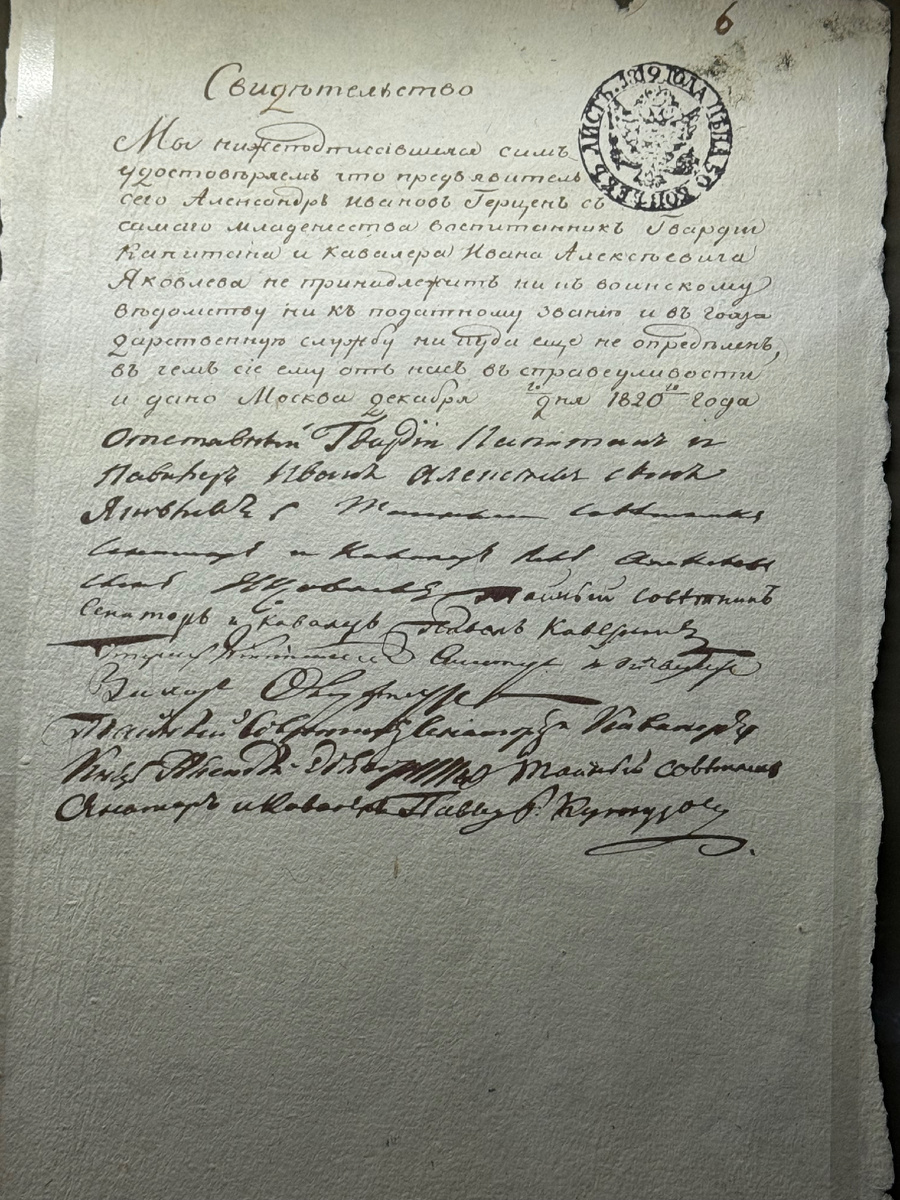 6
ЛИСТЪ. 1819 ГОДА ЦѢНА 50 КОПѢЕКЪ
Свидѣтельство
Мы нижеподписавшиеся симъ
удостовѣряемъ что предъявитель
сего Александръ Ивановъ Герценъ съ
самаго младенчества воспитанникъ Гвардіи
Капитана и Кавалера Ивана Алексѣевича
Яковлева не принадлежитъ ни къ воинскому
вѣдомству ни къ податному званію и въ госуда
дарственную службу ни куда еще не опредѣленъ,
въ чемъ сіе ему отъ насъ въ справедливости
и дано Москва декабря дня 1820 года
Отставный Гвардіи Капитанъ и
Кавалеръ Иванъ Алексѣевъ сынъ
Яковлевъ Тайный Совѣтникъ
Сенаторъ и Кавалеръ Левъ Алексѣевъ
сынъ Яковлевъ Тайный Совѣтникъ
Сенаторъ и Кавалеръ Павелъ Каверинъ
и
Тайный Совѣтникъ Сенаторъ и Кавалеръ
Тайный совѣтникъ
Сенаторъ и Кавалеръ Кутузовъ